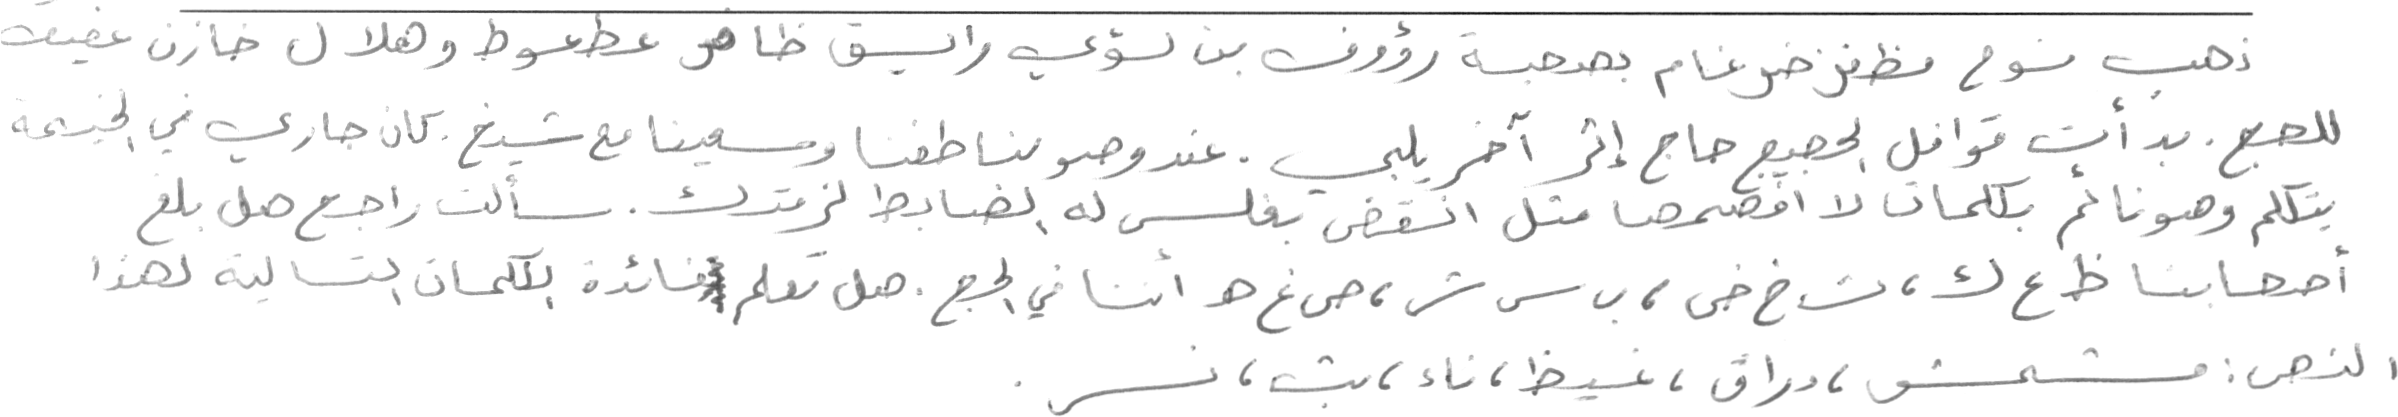 ذهب نوح مظفر ضرغام بصحبة رؤوف بن لؤي راليق ظافر عطعوط وهلال خازن عفيف
للحج. بدأت قوافل الحجيج حاج إثر آخر يلبي. عند وصولنا طفنا وسعينا مع شيخ. كان جاري في الخيمة
يتكلم وهو نائم بكلمات لا افهمها مثل انقض بفلس له الضابط لزمتك. سألت راجح هل بلغ
أصحابنا ظ ع ك، ث خ ض، ب س ش، ص غ هـ أننا في الحج. هل تعلم فائدة الكلمات التالية لهذا
النص: مشمش، دراق، غيظ، ناء، بث، نسر.